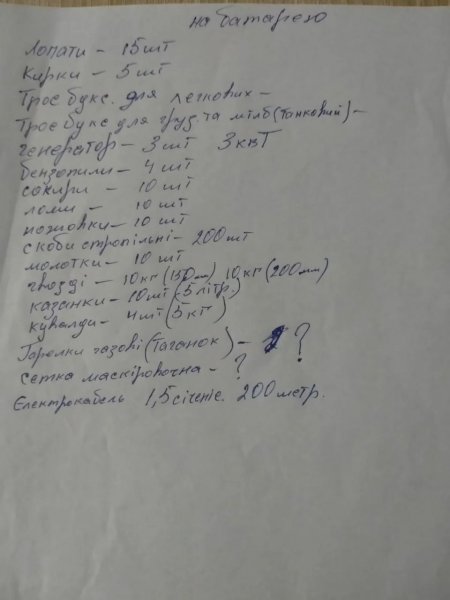 на батарею
Лопати - 15 шт
Кирки - 5 шт
Трос букс. для легкових -
Трос букс для груз. та мтлб (танковий) -
генератор - 3 шт 3 квТ
бензопили - 4 шт
сокири - 10 шт
ломи - 10 шт
ножовки - 10 шт
скоби стропільні - 200 шт
молотки - 10 шт
гвозді - 10 кг (150мм) 10 кг (200мм)
казанки - 10 шт (5 літр.)
кувалди - 4 шт (5 кг)
Горелки газові (Таганок) - ?
сетка маскіровочна - ?
Єлектрокабель 1,5 січеніе. 200 метр.